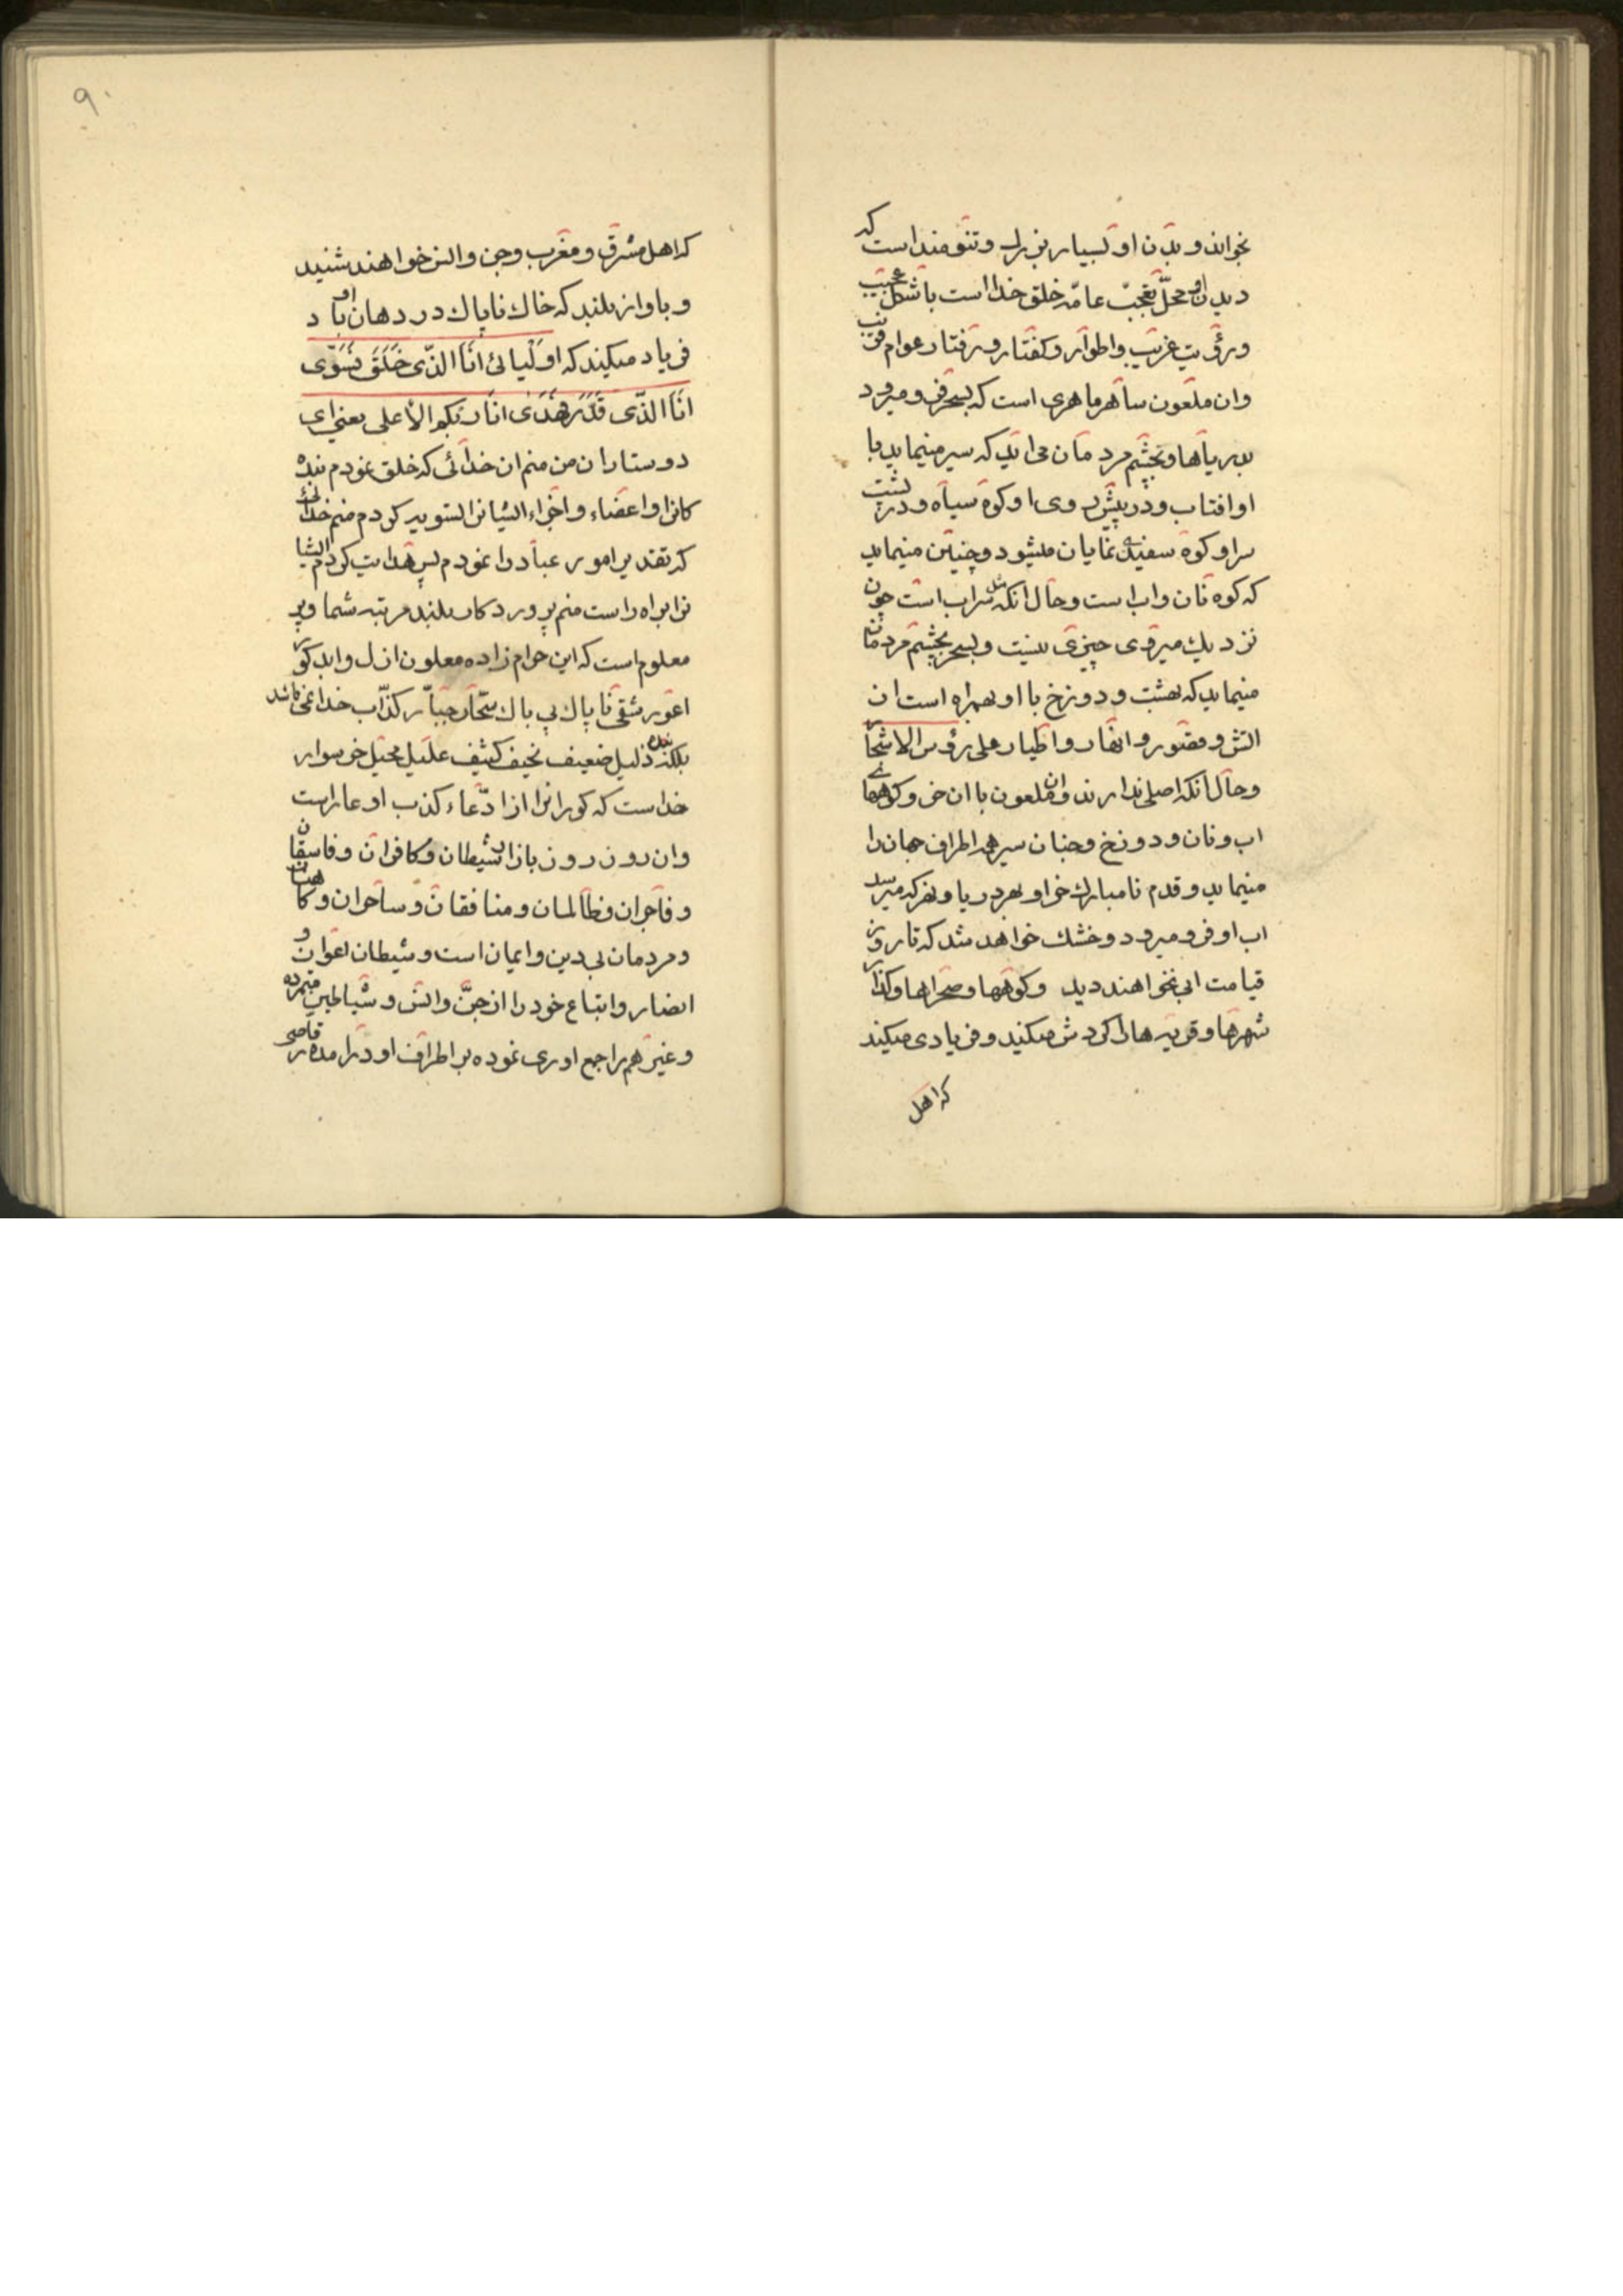 بخواند و بدن او بسیار بزرك و تنومند است که
دیدن او محلّ تعجبّ عامّه خلق خدا است با شکل عجیب
و رؤیت غریب و اطوار و کفتار و رفتار عوام فریب
وان ملعون ساهر ماهری است که بسحر فرو میرود
بدریاها و بچشم مردمان می اید که سیر مینماید با
او افتاب و در پیش روی او کوه سیاه و در پشت
سر او کوه سفیدی نمایان میشود و چنین مینماید
که کوه نان و اب است و حال انکه مثل سراب است چون
نزدیك میروی چیزی نیست و بسحر بچشم مردمان
مینماید که بهشت و دوزخ با او همراه است ان
اتش و قصور و انهار و اطیار علی رؤس الاشجار
و حال انکه اصلی ندارند و ان ملعون با ان خر و کوههای
اب و نان و دوزخ و جنان سیر همه اطراف جهان را
مینماید و قدم نامبارك خر او بهر دریا و نهر که میرسد
اب او فرو میرود و خشك خواهد شد که تا روز
قیامت ابی نخواهند دید و کوهها و صحراها و کذار
شهرها و قریه ها را کردش میکند و فریادی میکند
که اهل
۹۰
که اهل مشرق و مغرب و جن و انس خواهند شنید
و باواز بلند که خاك ناپاك در دهان او باد
فریاد میکند که اولیائی انا الذّی خَلَقَ فَسَوّی
انا الذّی قَدَّرَ فهَدَی انا ربکم الأعلی یعنی ای
دوستاران من منم ان خدائی که خلق نمودم بنده
کانرا و اعضاء و اجزاء ایشانرا تسویه کردم منم خدائی
که تقدیر امور عباد را نمودم پس هدایت کردم ایشا
نرا براه راست منم پروردکار بلند مرتبه شما و پر
معلوم است که این حرام زاده معلون ازل و ابد کور
اعور شقی ناپاك بی باك سحّار جبّار کذّاب خدا نمی باشد
بلکه بنده ذلیل ضعیف نحیف کثیف علیل محیل خر سوار
خداست که کورانرا از ادّعاء کذب او عار است
وان روز روز بازار شیطان و کافران و فاسقان
و فاجران و ظالمان و منافقان و ساحران و کاهنان
و مردمان بی دین و ایمان است و شیطان اعوان و
انصار و اتباع خود را از جنّ و انس و شیاطین متمرده
و غیرهم را جمع اوری نموده بر اطراف او درامده رقاصی